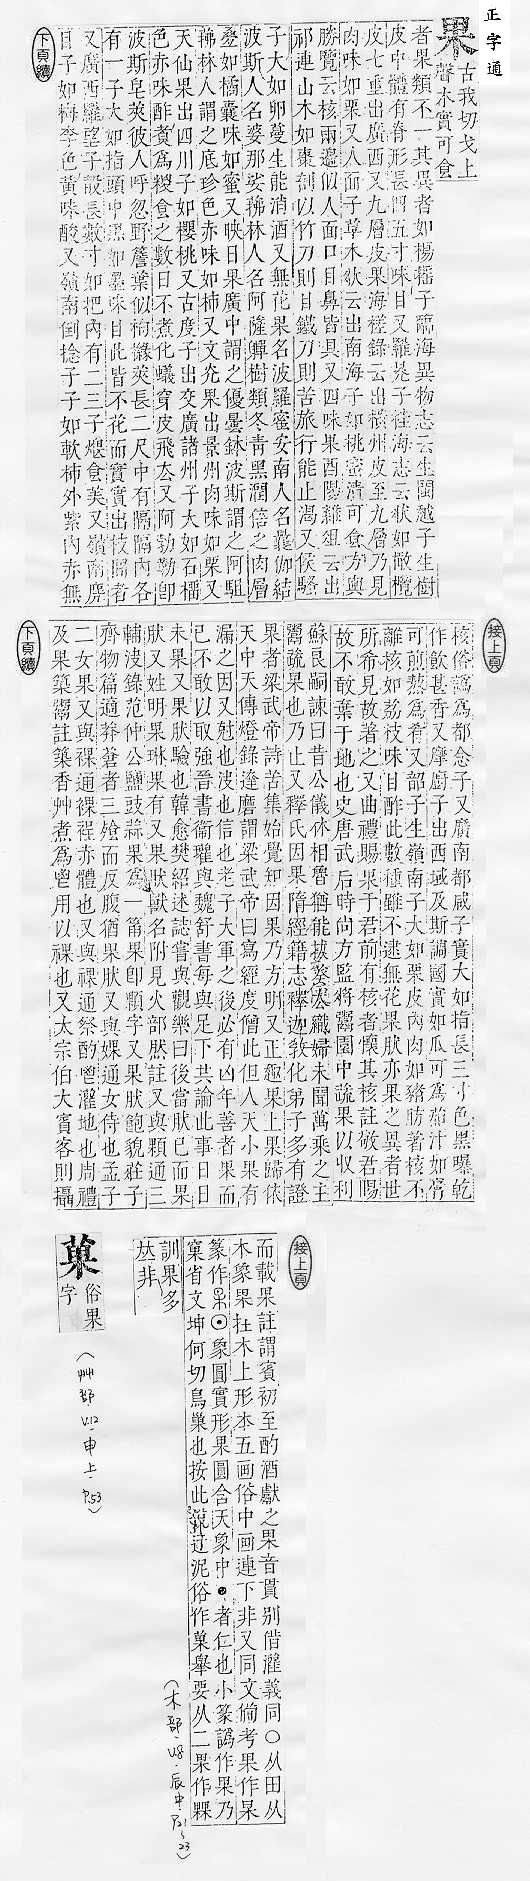 正字通
果
古我切戈上
聲木實可食
者果類不一其異者如楊搖子臨海異物志云生閩越子生樹
皮中體有脊形長四五寸味甘又羅晃子桂海志云狀如橄欖
皮七重出廣西又九層皮果海槎錄云出橫州皮至九層乃見
肉味如栗又人面子草木狀云出南海子如桃蜜漬可食方輿
勝覽云核兩邊似人面口目鼻皆具又四味果酉陽雜俎云出
祁連山木如棗剖以竹刀則甘鐵刀則苦旅行能止渴又侯騷
子大如卵蔓生能消酒又無花果名波羅蜜安南人名曩伽結
波斯人名婆那娑拂林人名阿薩嚲樹類冬青黑潤倍之肉層
疊如橘囊味如蜜又映日果廣中謂之優曇鉢波斯謂之阿駔
拂林人謂之底珍色赤味如柿又文光果出景州肉味如栗又
天仙果出四川子如櫻桃又古度子出交廣諸州子大如石榴
色赤味酢煑爲糉食之數日不煮化蟻穿皮飛去又阿勃勒卽
波斯皁莢彼人呼忽野簷葉似枸櫞莢長二尺中有隔隔內各
有一子大如指頭中黑如墨味甘此皆不花而實實出枝間者
又廣西羅望子殼長數寸如肥內有二三子煨食美又嶺南麂
目子如梅李色黃味酸又嶺南倒捻子子如軟柿外紫內赤無
下頁續
接上頁
核俗譌爲都念子又廣南都咸子實大如指長三寸色黑曝乾
作飲甚香又摩廚子出西域及斯調國實如瓜可爲茹汁如膏
可煎熬爲肴又韶子生嶺南子大如栗皮內肉如豬肪著核不
離核如荔枝味甘酢此數種雖不逮無花果狀亦果之異者世
所希見故著之又曲禮賜果于君前有核者懷其核註敬君賜
故不敢棄于地也史唐武后時尙方監將鬻園中蔬果以收利
蘇良嗣諫曰昔公儀休相魯猶能拔葵去織婦未聞萬乘之主
鬻蔬果也乃止又釋氏因果隋經籍志釋迦敎化弟子多有證
果者梁武帝詩苦集始覺知因果乃方明又正趣果上果歸依
天中天傳燈錄達磨謂梁武帝曰寫經度僧此但人天小果有
漏之因又尅也決也信也老子大軍之後必有凶年善者果而
已不敢以取強晉書衞瓘與魏舒書每與足下共論此事日日
未果又果狀驗也韓愈樊紹述誌嘗與觀樂曰後當狀已而果
狀又姓明果琳果有又果狀獸名附見火部然註又與顆通三
輔決錄范仲公鹽豉蒜果爲一筩果卽顆字又果狀飽貌莊子
齊物篇適莽蒼者三飡而反腹猶果狀又與婐通女侍也孟子
二女果又與裸通裸裎赤體也又與祼通祭酌鬯灌地也周禮
及果築鬻註築香艸煮爲鬯用以祼也又太宗伯大賓客則攝
下頁續
接上頁
而載果註謂賓初至酌酒獻之果音貫別偕灌義同〇从田从
木象果在木上形本五画俗中画連下非又同文備考果作杲
篆作⊙象圓實形果圓含天象中●者仁也小篆譌作果乃
窠省文坤何切鳥巢也按此說迂泥俗作菓舉要从二果作㮆
訓果多
𠀤非
菓
俗果
字
（艸部．V.12．申上．P.53）
（木部．V.8．辰中．P.21~23）